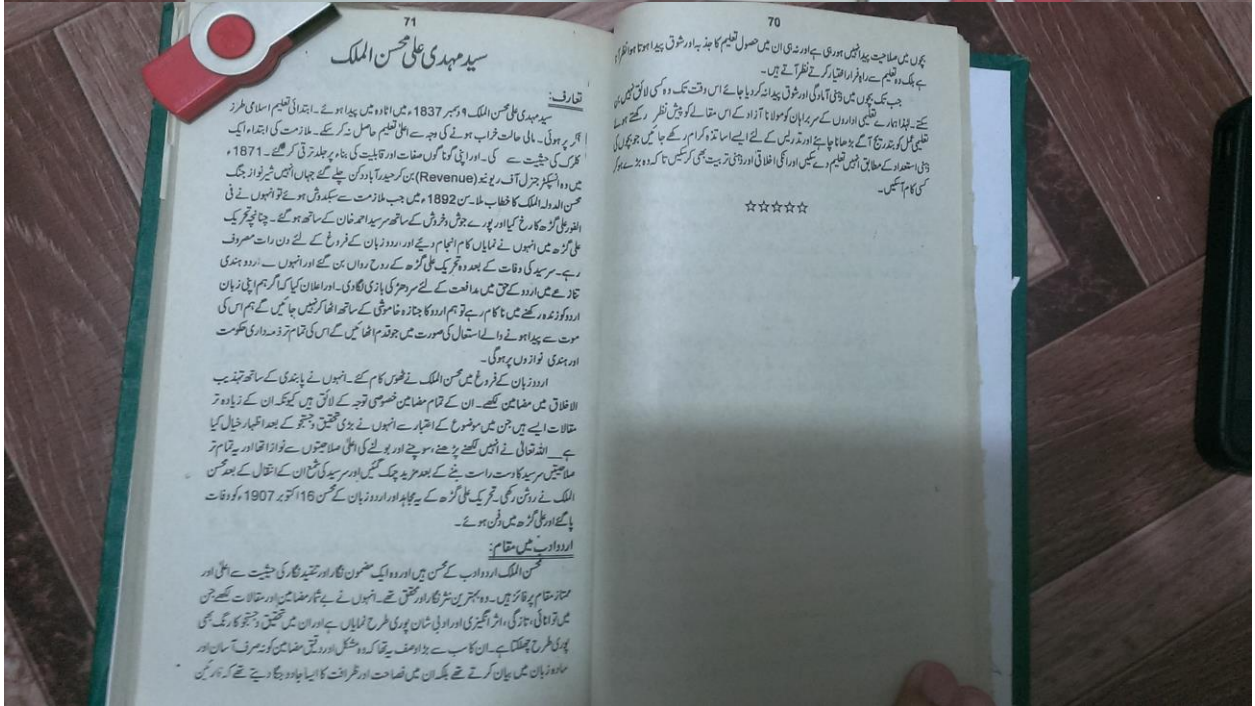 70
بچوں میں صلاحیت پیدا نہیں ہورہی ہے اور نہ ہی ان میں حصول تعلیم کا جذبہ اور شوق پیدا ہوتا ہوا نظر آتا
ہے بلکہ وہ تعلیم سے راہ فرار اختیار کرتے نظر آتے ہیں۔
جب تک بچوں میں ذہنی آمادگی اور شوق پیدا نہ کردیا جائے اس وقت تک وہ کسی لائق نہیں بن
سکتے۔ لہٰذا ہمارے تعلیمی اداروں کے سربراہان کو مولانا آزاد کے اس مقالے کو پیش نظر رکھتے ہوئے
تعلیمی عمل کو بتدریج آگے بڑھانا چاہئے اور تدریس کے لئے ایسے اساتذہ کرام رکھے جائیں جو بچوں کی
ذہنی استعداد کے مطابق انہیں تعلیم دے سکیں اور انکی اخلاقی اور ذہنی تربیت بھی کرسکیں تاکہ وہ بڑے ہوکر
کسی کام آسکیں۔
☆☆☆☆☆
71
سید مہدی علی محسن الملک
تعارف:
سید مہدی علی محسن الملک ۹ دسمبر 1837ء میں اٹاوہ میں پیدا ہوئے۔ ابتدائی تعلیم اسلامی طرز
پر ہوئی۔ مالی حالت خراب ہونے کی وجہ سے اعلیٰ تعلیم حاصل نہ کرسکے۔ ملازمت کی ابتداء ایک
کلرک کی حیثیت سے کی۔ اور اپنی گوناگوں صفات اور قابلیت کی بناء پر جلد ترقی کرگئے۔ 1871ء
میں وہ انسپکٹر جنرل آف ریونیو (Revenue) بن کر حیدرآباد دکن چلے گئے جہاں انہیں شیر نواز جنگ
محسن الدولہ الملک کا خطاب ملا۔ سن 1892ء میں جب ملازمت سے سبکدوش ہوئے تو انہوں نے فی
الفور علی گڑھ کا رخ کیا اور پورے جوش و خروش کے ساتھ سرسید احمد خان کے ساتھ ہوگئے۔ چنانچہ تحریک
علی گڑھ میں انہوں نے نمایاں کام انجام دیئے اور اردو زبان کے فروغ کے لئے دن رات مصروف
رہے۔ سرسید کی وفات کے بعد وہ تحریک علی گڑھ کے روح رواں بن گئے اور انہوں نے اردو ہندی
تنازعے میں اردو کے حق میں مدافعت کے لئے سر دھڑ کی بازی لگادی۔ اور اعلان کیا کہ اگر ہم اپنی زبان
اردو کو زندہ رکھنے میں ناکام رہے تو ہم اردو کا جنازہ خاموشی کے ساتھ اٹھا کر نہیں جائیں گے ہم اس کی
موت سے پیدا ہونے والے اشتعال کی صورت میں جو قدم اٹھائیں گے اس کی تمام تر ذمہ داری حکومت
اور ہندی نوازوں پر ہوگی۔
اردو زبان کے فروغ میں محسن الملک نے ٹھوس کام کئے۔ انہوں نے پابندی کے ساتھ تہذیب
الاخلاق میں مضامین لکھے۔ ان کے تمام مضامین خصوصی توجہ کے لائق ہیں کیونکہ ان کے زیادہ تر
مقالات ایسے ہیں جن میں موضوع کے اعتبار سے انہوں نے بڑی تحقیق و جستجو کے بعد اظہار خیال کیا
ہے__ اللہ تعالیٰ نے انہیں لکھنے پڑھنے، سوچنے اور بولنے کی اعلیٰ صلاحیتوں سے نوازا تھا اور یہ تمام تر
صلاحیتیں سرسید کا دست راست بننے کے بعد مزید چمک گئیں اور سرسید کی شمع ان کے انتقال کے بعد محسن
الملک نے روشن رکھی۔ تحریک علی گڑھ کے یہ مجاہد اور اردو زبان کے محسن 16 اکتوبر 1907ء کو وفات
پا گئے اور علی گڑھ میں دفن ہوئے۔
اردو ادب میں مقام:
محسن الملک اردو ادب کے محسن ہیں اور وہ ایک مضمون نگار اور تنقید نگار کی حیثیت سے اعلیٰ اور
ممتاز مقام پر فائز ہیں۔ وہ بہترین نثر نگار اور محقق تھے۔ انہوں نے بے شمار مضامین اور مقالات لکھے جن
میں توانائی، تازگی، اثر انگیزی اور ادبی شان پوری طرح نمایاں ہے اور ان میں تحقیق و جستجو کا رنگ بھی
پوری طرح جھلکتا ہے۔ ان کا سب سے بڑا وصف یہ تھا کہ وہ مشکل اور دقیق مضامین کو نہ صرف آسان اور
سادہ زبان میں بیان کرتے تھے بلکہ ان میں فصاحت اور ظرافت کا ایسا جادو جگا دیتے تھے کہ قارئین